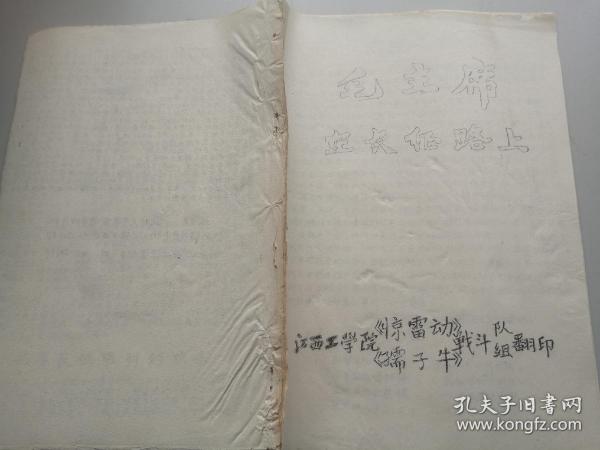 毛主席
在长征路上
江西工学院《惊雷动》战斗队
《孺子牛》组翻印
孔夫子旧书网
www.kongfz.com